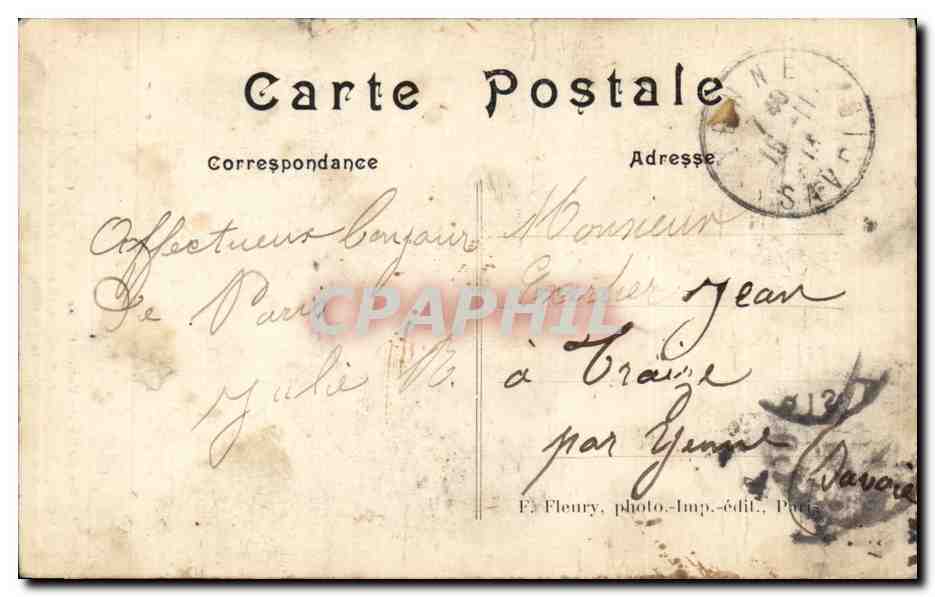 Carte Postale
Correspondance
Adresse
Affectueux bonjour
de Paris
Julie R.
Monsieur
Jean
à Traize
par Yenne
(Savoie
F. Fleury, photo.-Imp.-édit., Paris
CPAPHIL